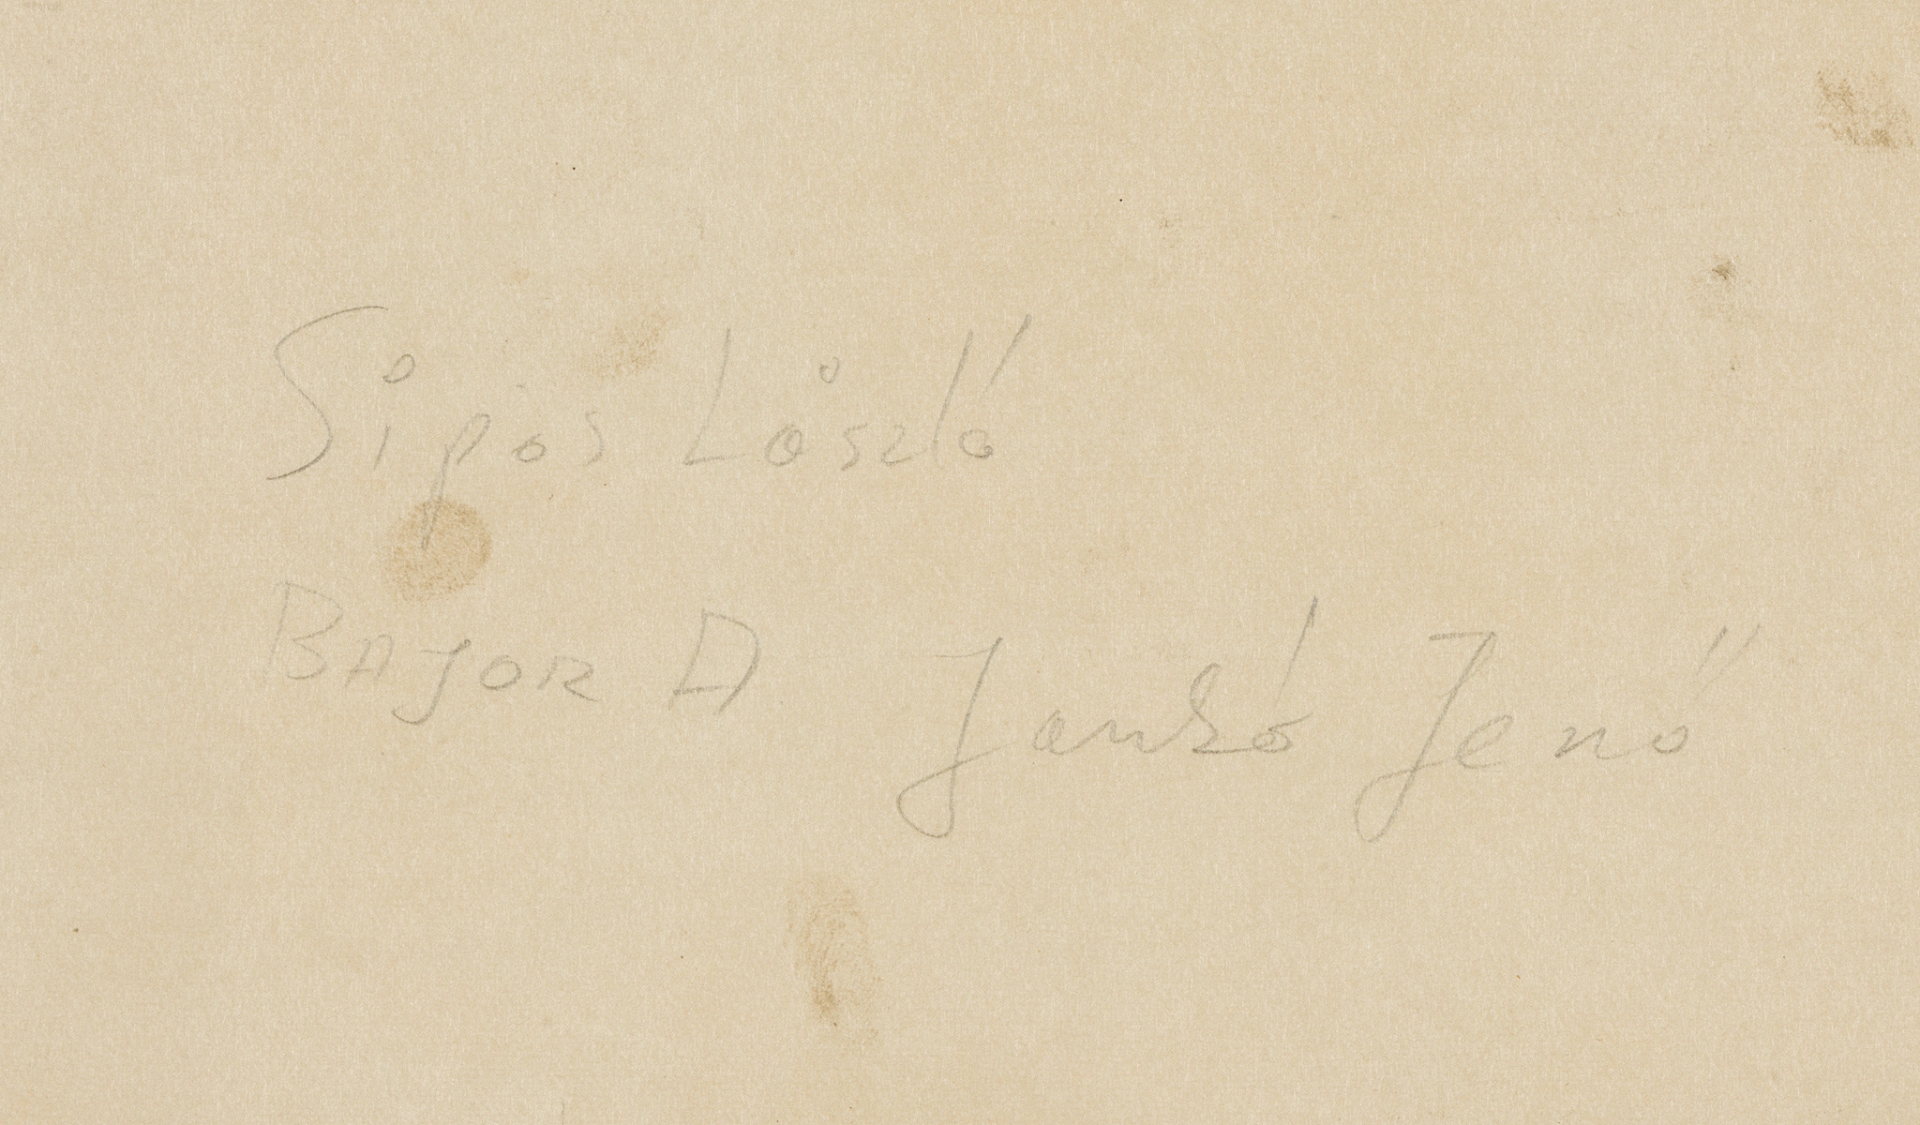 Sipos Låszló
BAJOR A Jankó Jenő